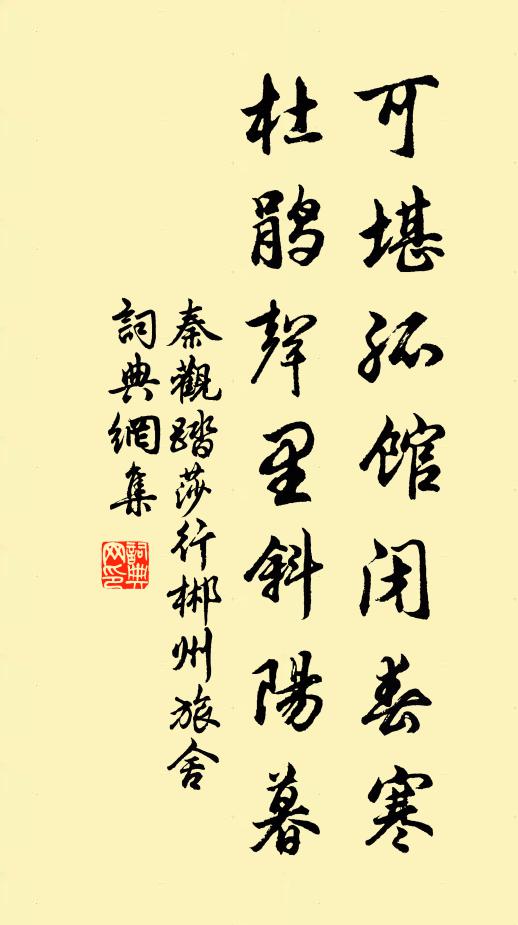 可堪孤館闭春寒
杜鹃聲里斜陽暮
秦觀踏莎行郴州旅舍
詞典網集
詞典网印